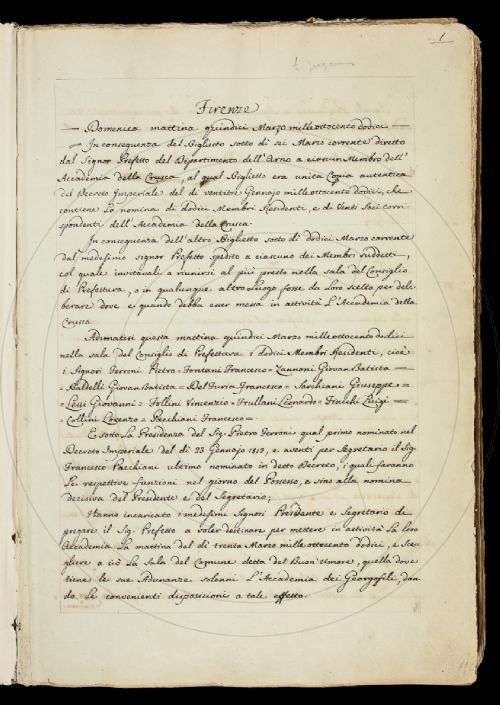 1
Firenze
— Domenica mattina quindici Marzo mille ottocento dodici —
— In consequenza del Biglietto sotto di sei Marzo corrente diretto
dal Signor Prefetto del Dipartimento dell'Arno a ciascun Membro dell'
Accademia della Crusca, al qual Biglietto era unita Copia autentica
del Decreto Imperiale del di ventitre Gennajo mille ottocento dodici, che
contiene la nomina di dodici Membri Residenti, e di Venti Soci corri-
spondenti dell'Accademia della Crusca.
In consequenza dell'altro Biglietto sotto di dodici Marzo corrente
dal medesimo signor Prefetto spedito a ciascuno dei Membri suddetti,
col quale invitavali a riunirsi al più presto nella sala del Consiglio
di Prefettura, o in qualunque altro Luogo fosse da Loro scelto per deli-
berare dove e quando debba esser messa in attività L'Accademia della
Crusca
Adunatisi questa mattina quindici Marzo mille ottocento dodici
nella sala del Consiglio di Prefettura i dodici Membri Residenti, cioè
i Signori Ferroni Pietro = Fontani Francesco = Zannoni Giovan Batista =
= Baldelli Giovan Batista = Del Furia Francesco = Sarchiani Giuseppe =
= Lessi Giovanni = Follini Vincenzio = Frullani Leonardo = Fiacchi Luigi =
= Collini Lorenzo = Pacchiani Francesco =
E sotto La Presidenza del Sig. Pietro Ferroni qual primo nominato nel
Decreto Imperiale del di 23 Gennajo 1812, e aventi per Segretario il Sig.
Francesco Pacchiani ultimo nominato in detto Decreto, i quali faranno
Le respettive funzioni nel giorno del Possesso, e sino alla nomina
decisiva del Presidente e del Segretario;
Hanno incaricato i medesimi Signori Presidente e Segretario di
pregare il Sig. Prefetto a voler destinare per mettere in attività La loro
Accademia La mattina del di trenta Marzo mille ottocento dodici, e sce-
gliere a ciò La Sala del Comune detta del Buon'Umore, quella dove
tiene le sue Adunanze solenni L'Accademia dei Georgofili, dan-
do Le convenienti disposizioni a tale effetto.